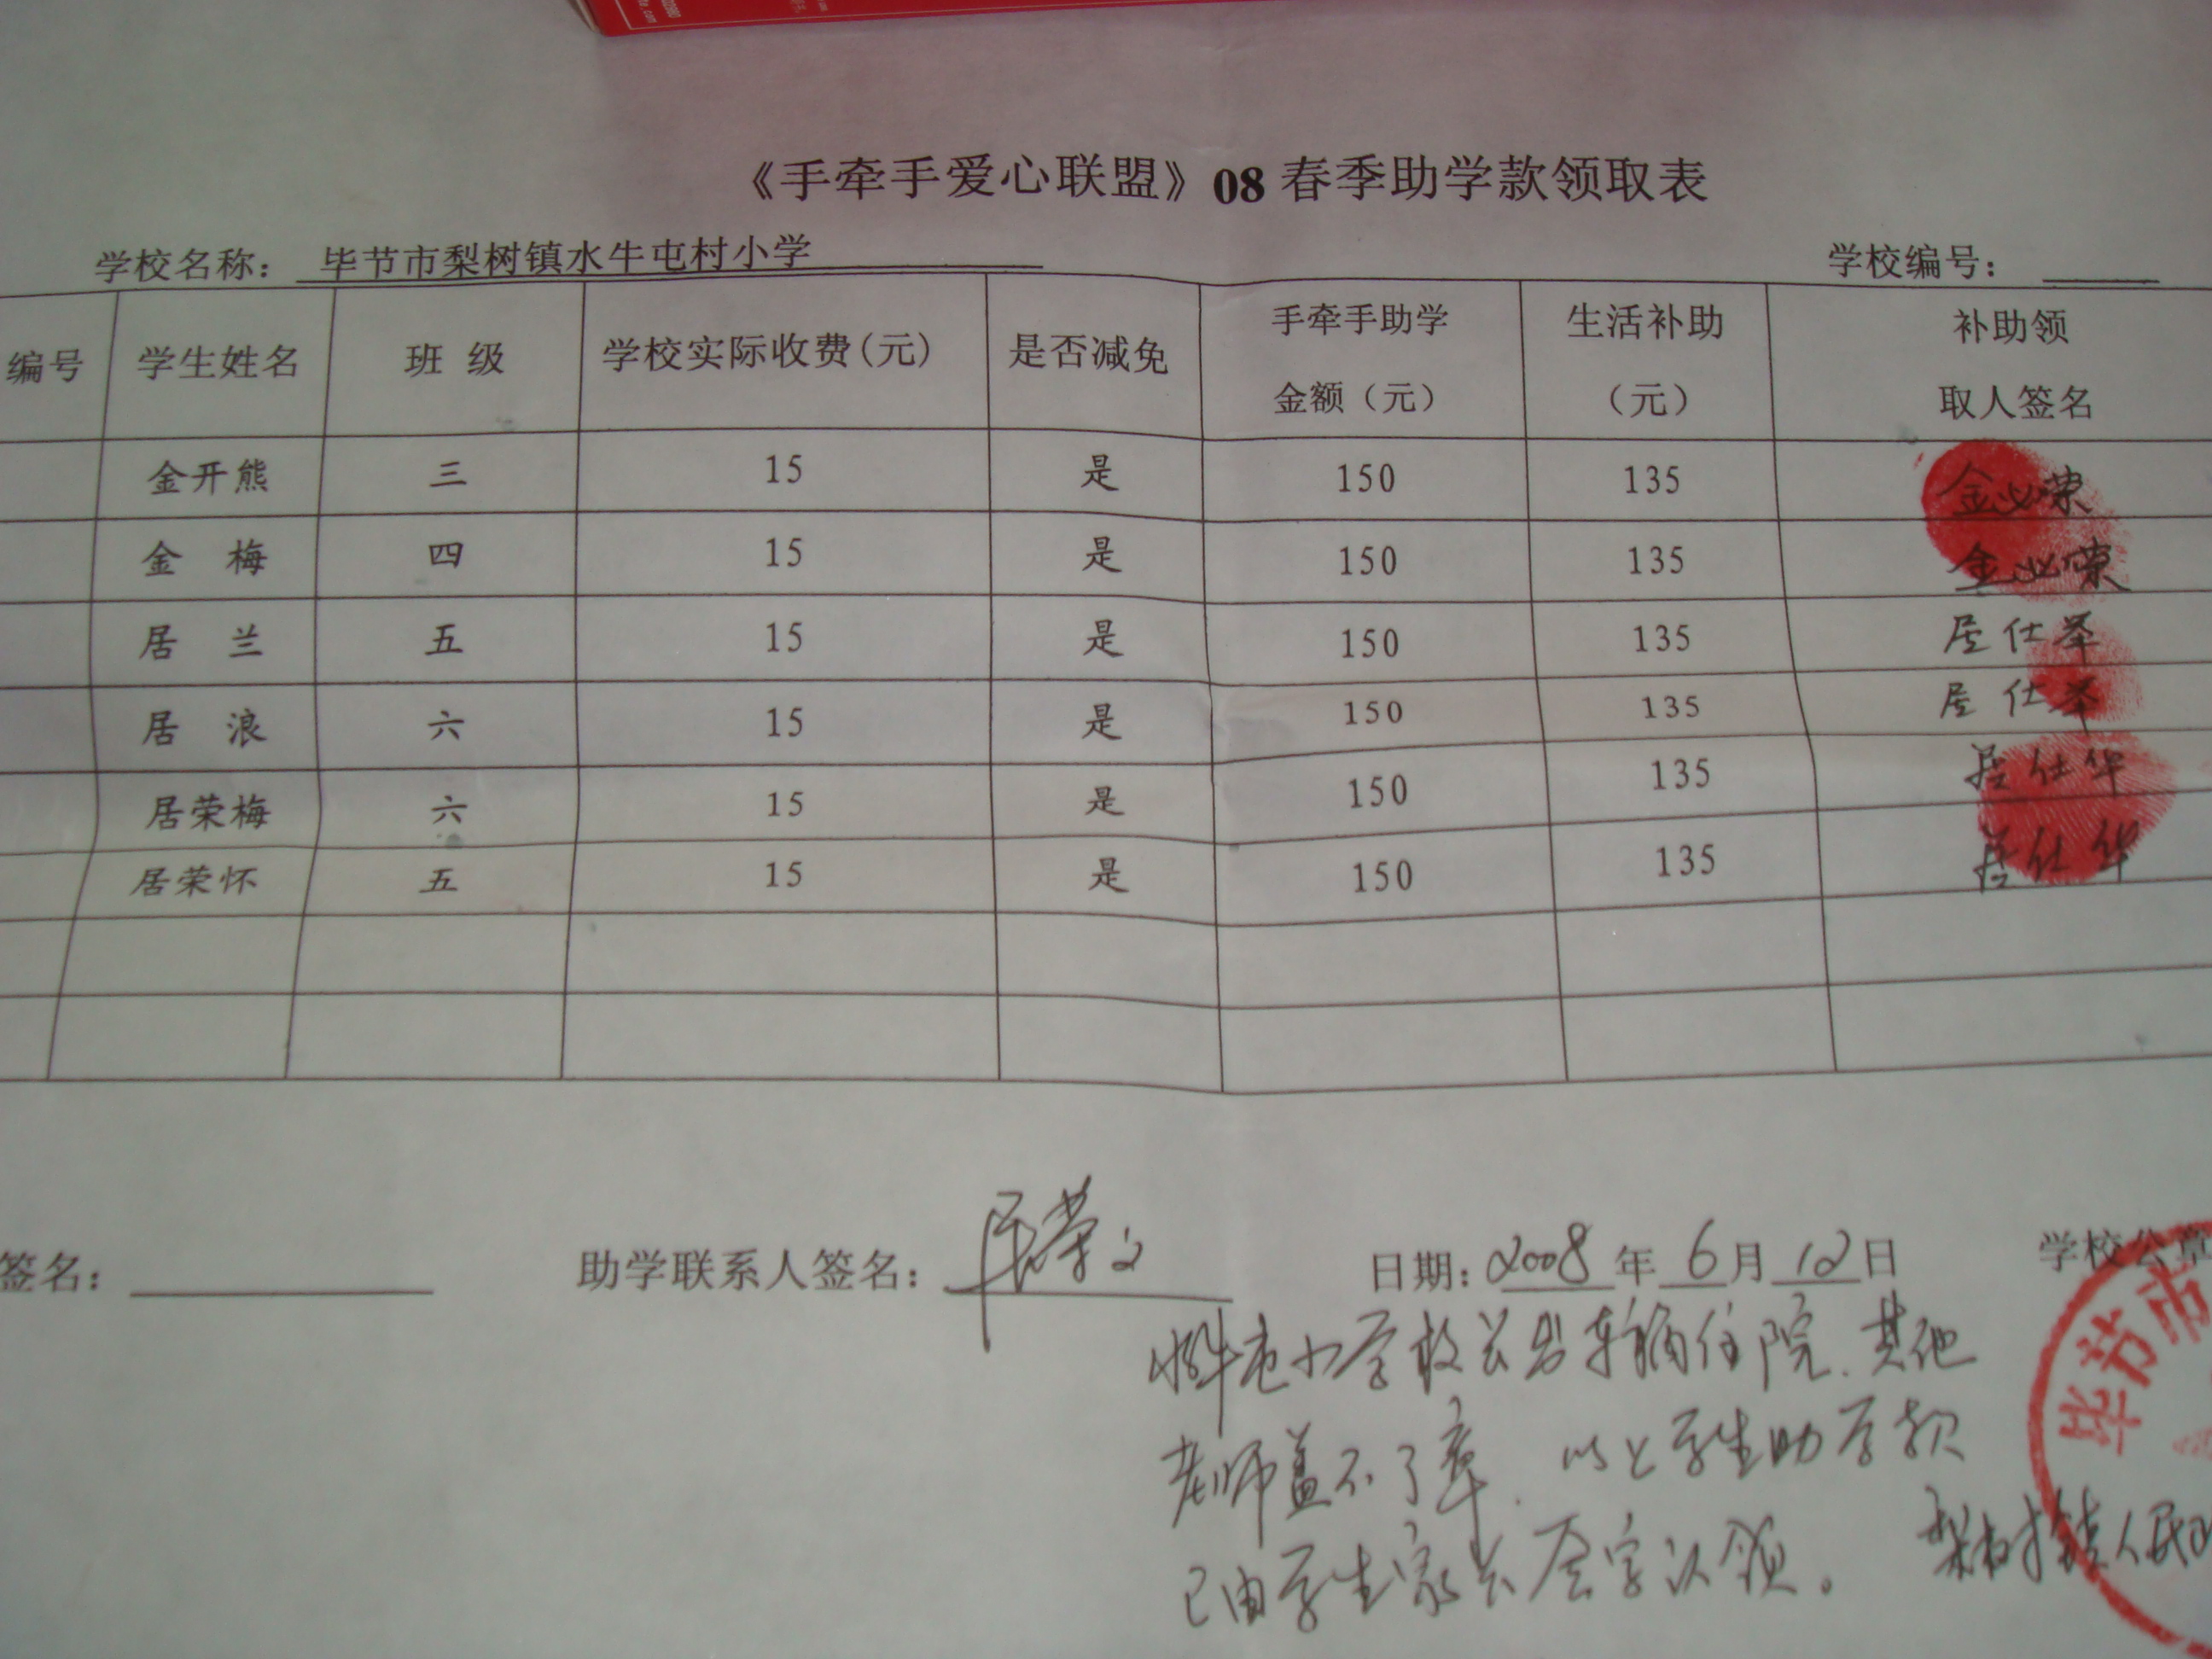 《手牵手爱心联盟》08春季助学款领取表
学校名称： 毕节市梨树镇水牛屯村小学 学校编号：
编号 学生姓名 班 级 学校实际收费(元) 是否减免 手牵手助学金额（元） 生活补助（元） 补助领取人签名
金开熊 三 15 是 150 135 金必荣
金 梅 四 15 是 150 135 金必荣
居 兰 五 15 是 150 135 居仕圣
居 浪 六 15 是 150 135 居仕圣
居荣梅 六 15 是 150 135 居仕华
居荣怀 五 15 是 150 135 居仕华
签名： 助学联系人签名：居荣文 日期：2008年6月12日 学校公章
水牛屯小学校长出车祸住院.其他
老师盖不了章.以上学生助学款
已由学生家长签字认领。 梨树镇人民
毕节市